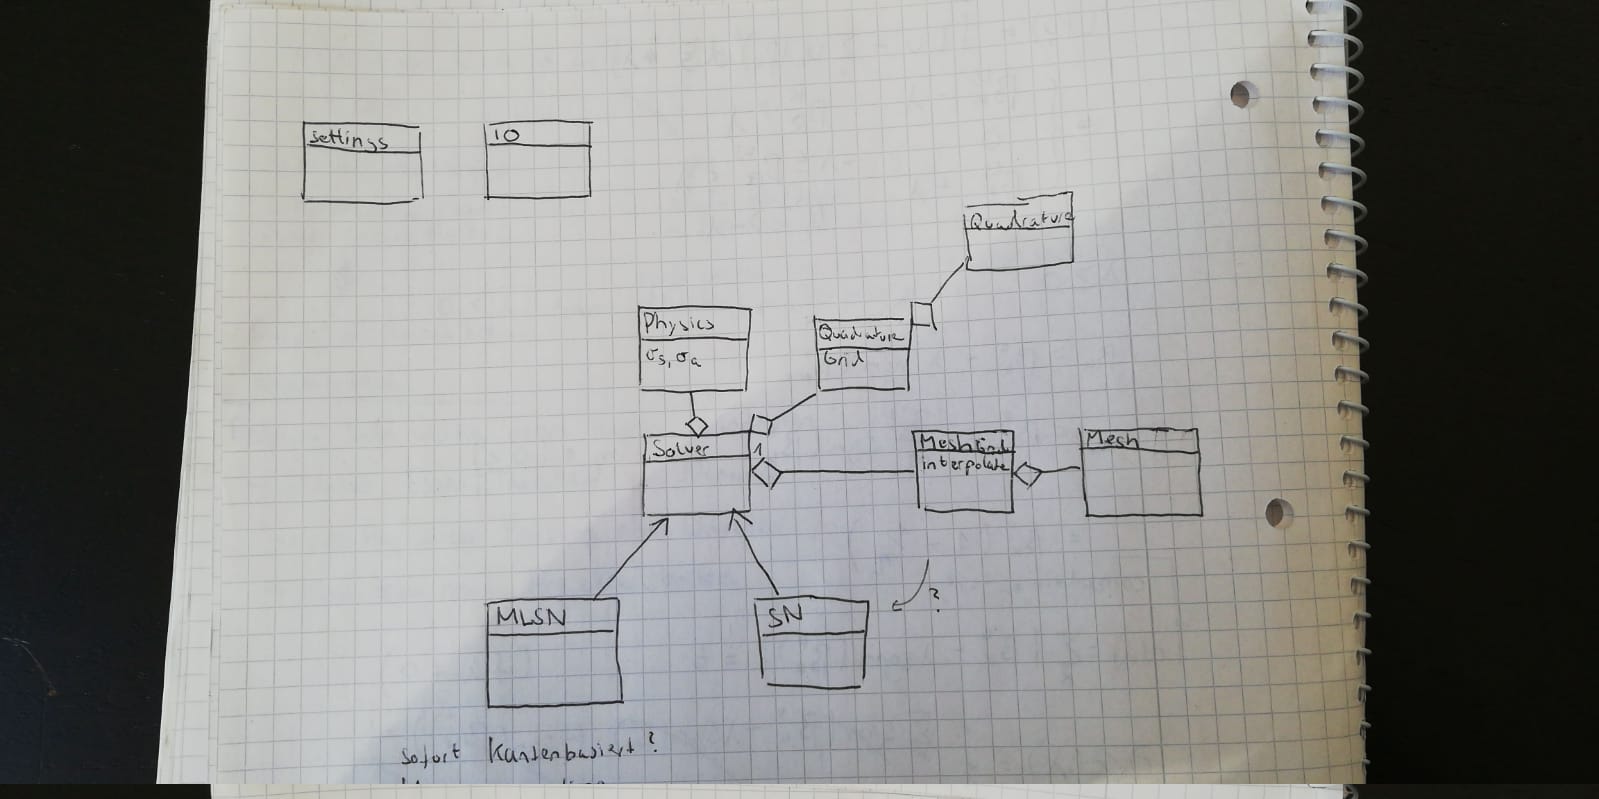 settings
IO
Quadrature
Physics
σs, σa
Quadrature
Grid
Solver
1
MeshGrid
interpolate
Mesh
MLSN
SN
?
Sofort Kantenbasiert?